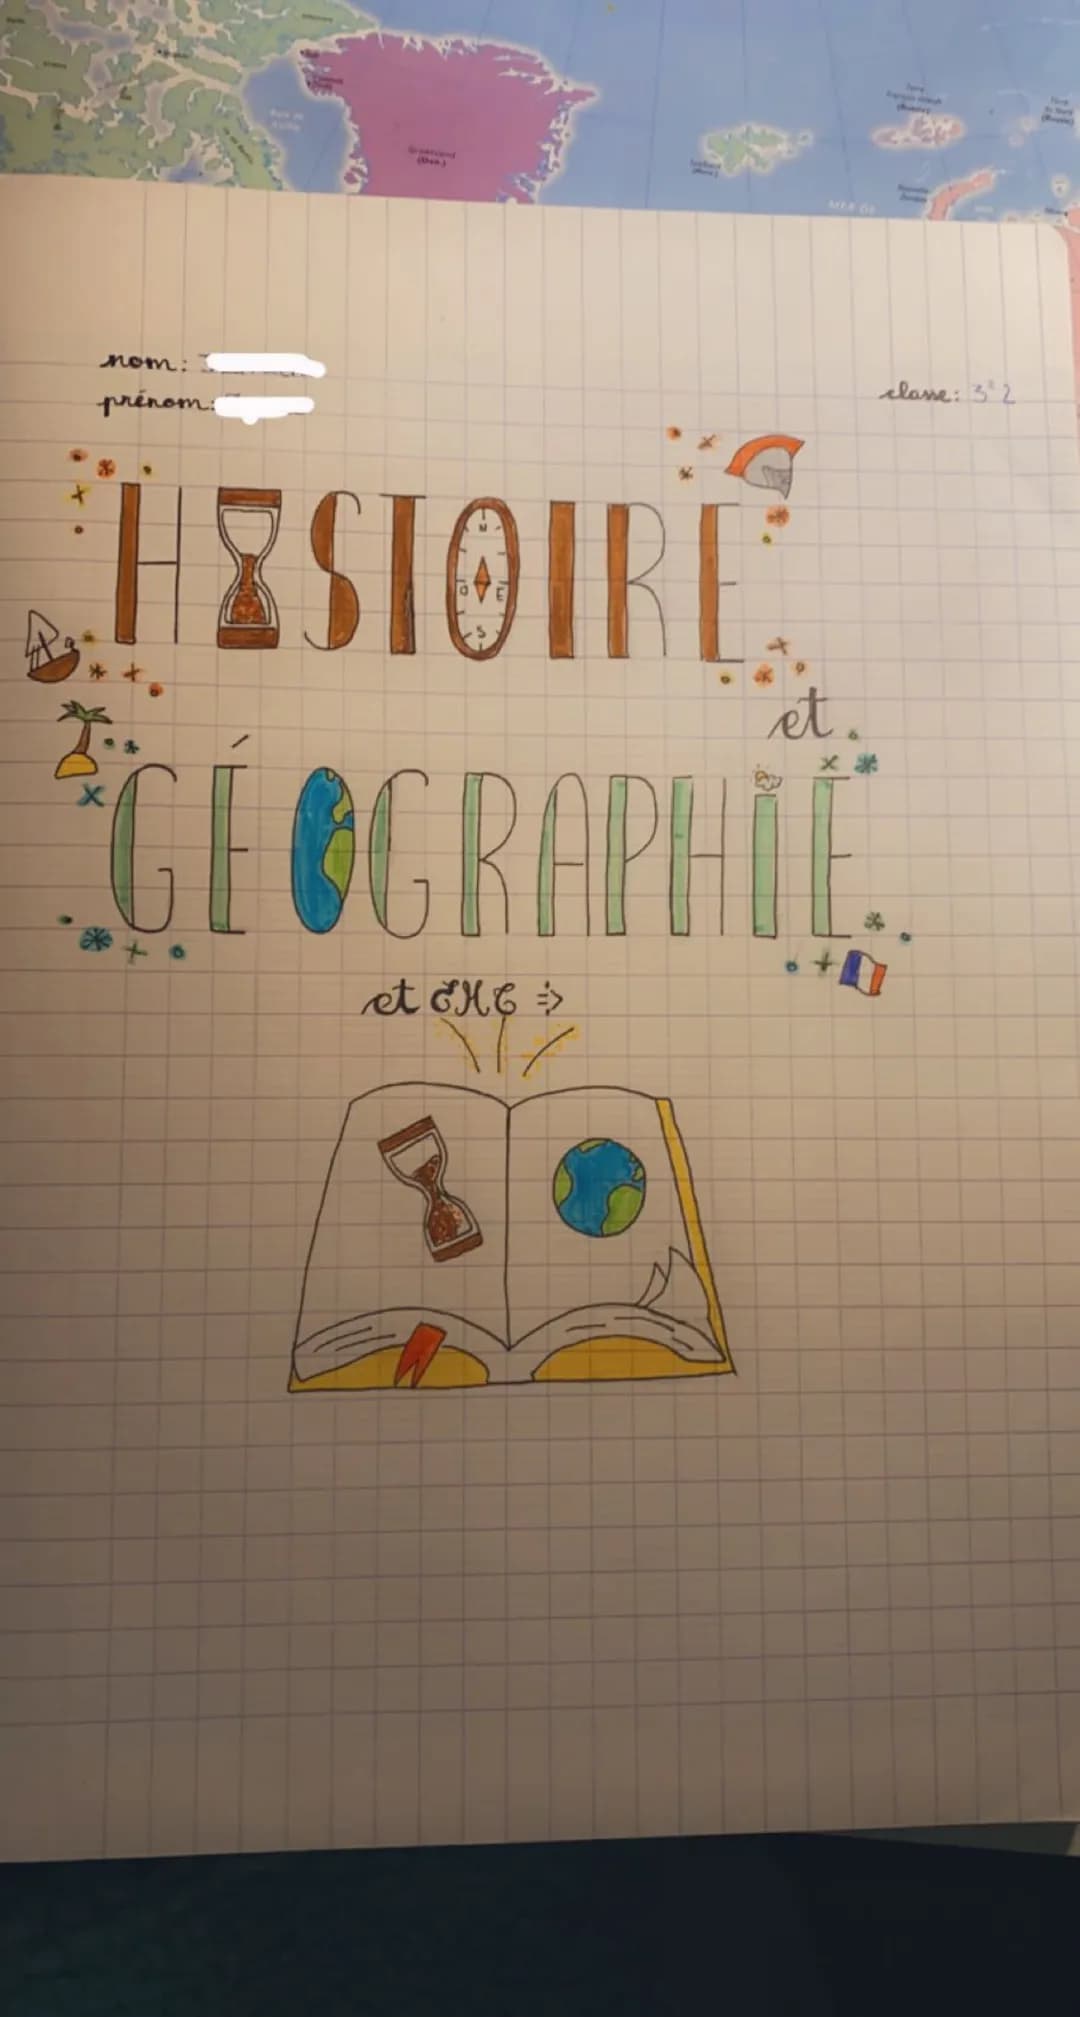 Groenland
(Dan.)
nom:
prénom:
classe: 3°2
HISTOIRE
N
O E
S
et
GÉOGRAPHIE
et EMC =>